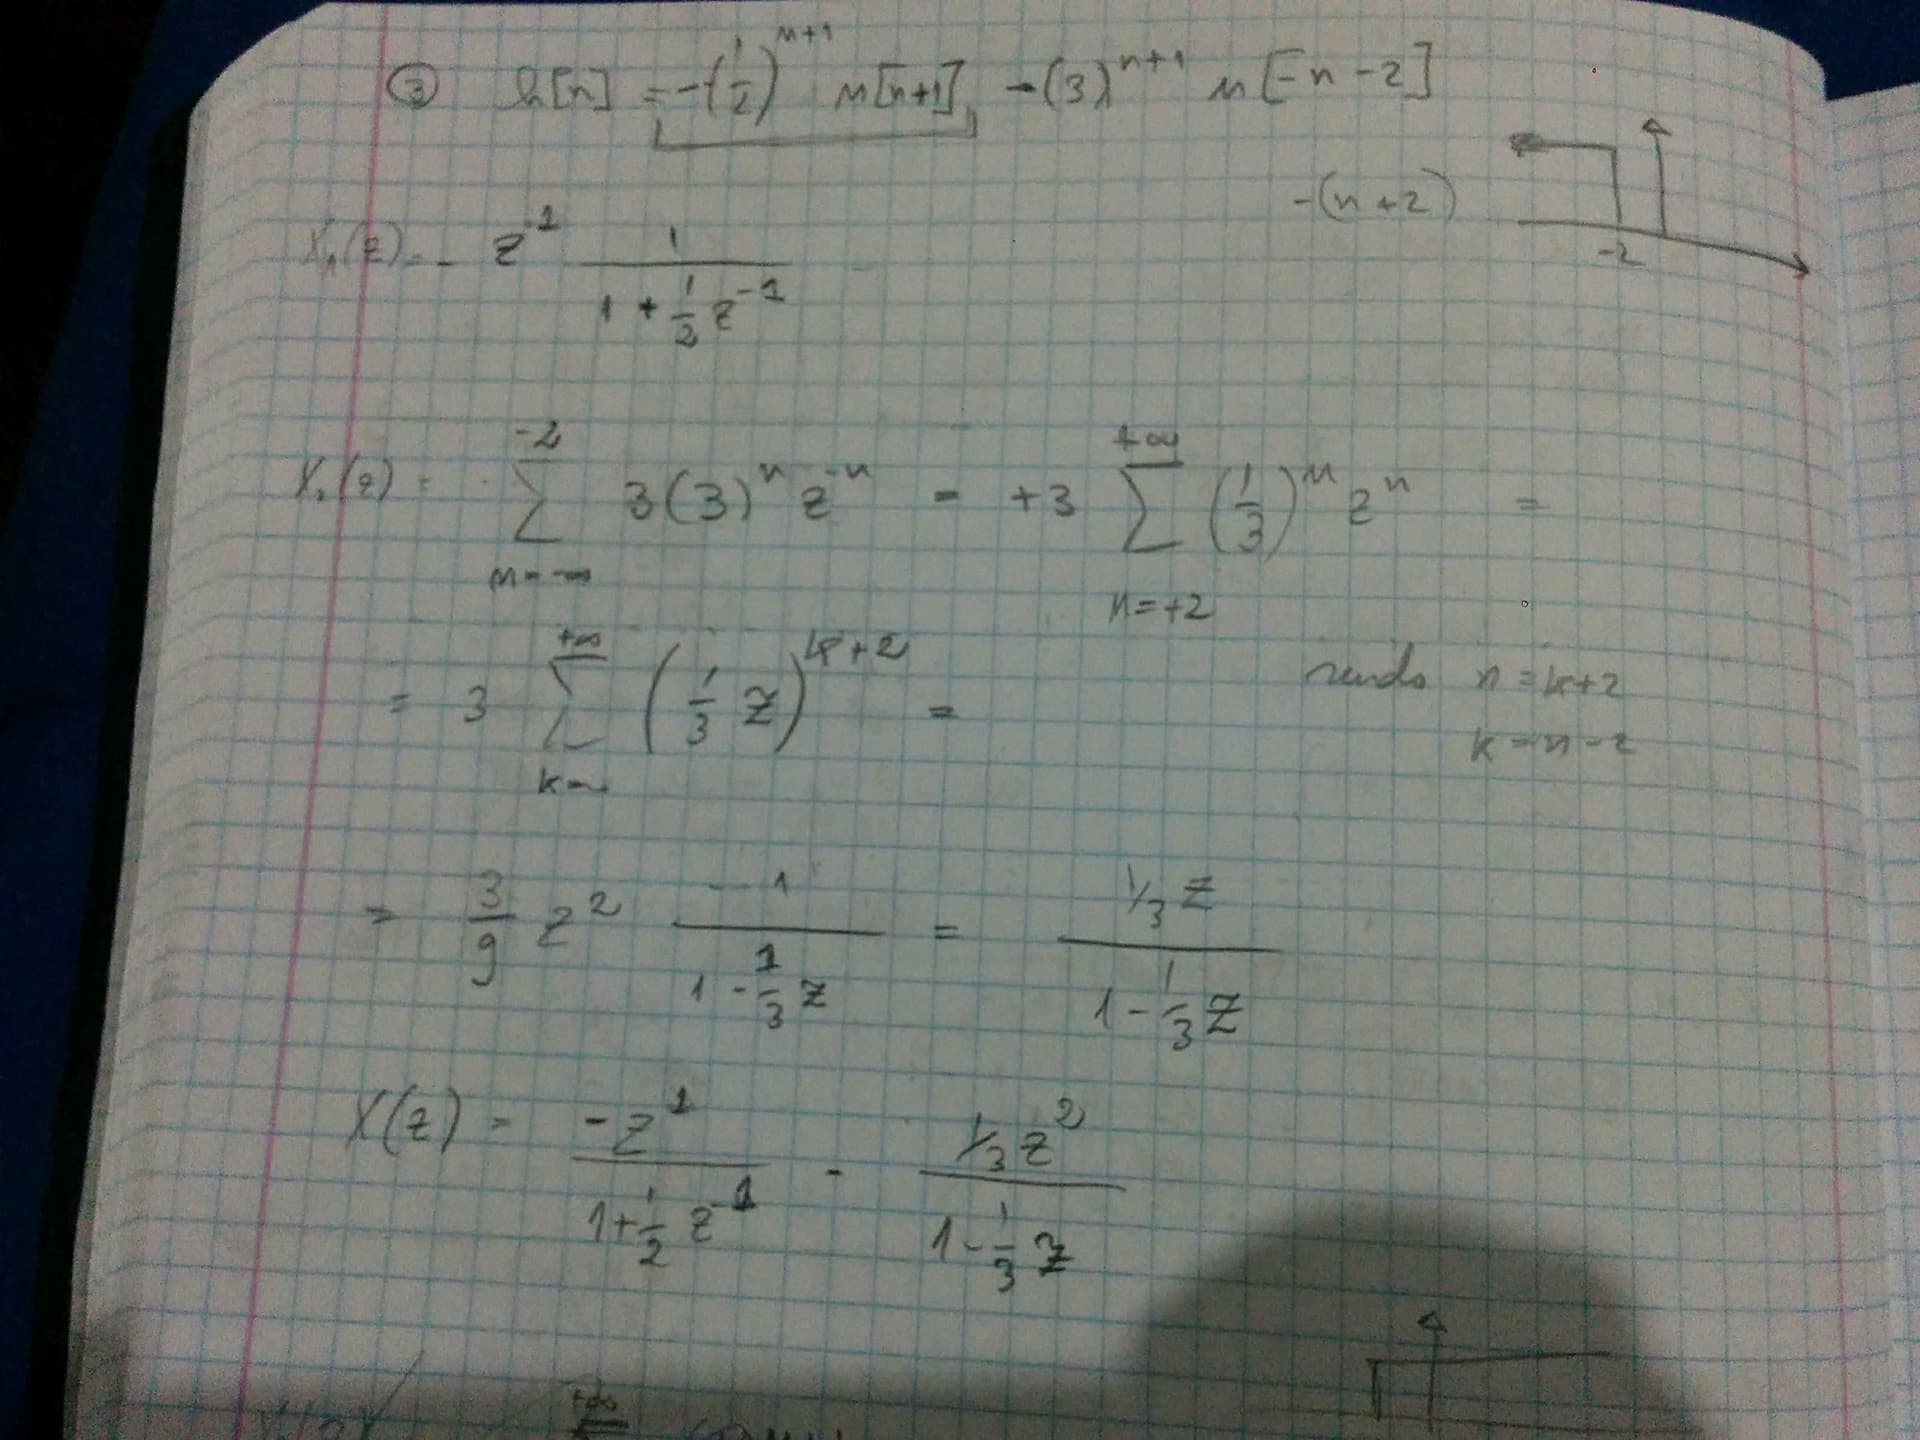 ③ h[n] = -(1/2)^{n+1} u[n+1] - (3)^{n+1} u[-n-2]
-(n+2)
-2
X₁(z) = - z^{-1} 1/(1 + 1/2 z^{-1})
X₂(z) = ∑_{n=-∞}^{-2} 3(3)^n z^{-n} = +3 ∑_{n=+2}^{+∞} (1/3)^n z^n =
= 3 ∑^{+∞} (1/3 z)^{k+2} =
n = k+2
k = n-2
= 3/9 z^2 1/(1 - 1/3 z) = 1/3 z/(1 - 1/3 z)
X(z) = -z^1/(1 + 1/2 z^{-1}) - 1/3 z^2/(1 - 1/3 z)
+∞